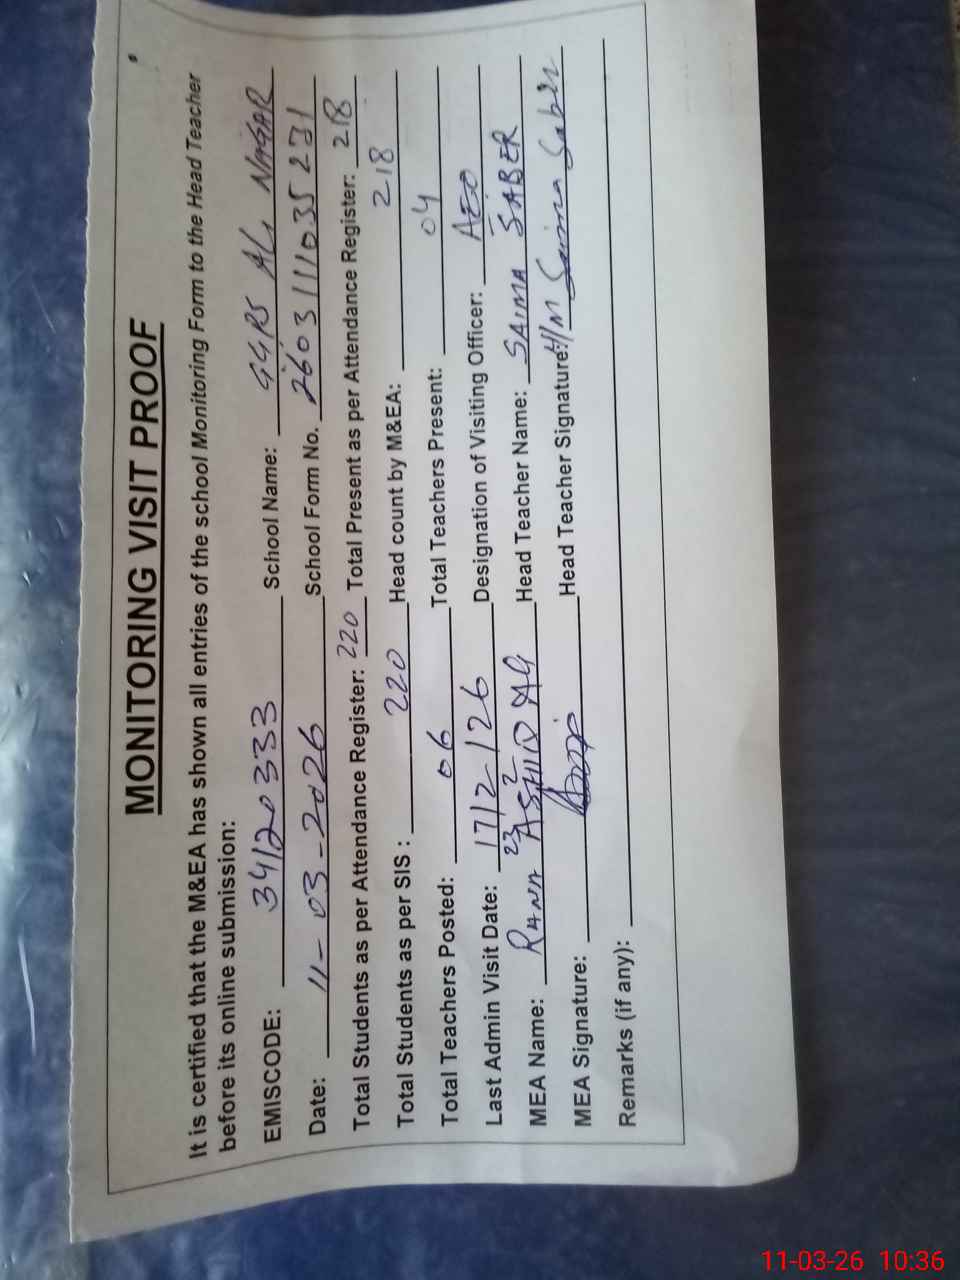 MONITORING VISIT PROOF
It is certified that the M&EA has shown all entries of the school Monitoring Form to the Head Teacher
before its online submission:
EMISCODE: 34120333 School Name: GGPS ALI NAGAR
Date: 11-03-2026 School Form No. 2603111035231
Total Students as per Attendance Register: 220 Total Present as per Attendance Register: 218
Total Students as per SIS : 220 Head count by M&EA: 218
Total Teachers Posted: 06 Total Teachers Present: 04
Last Admin Visit Date: 17/2/26 Designation of Visiting Officer: AEO
MEA Name: RANA Head Teacher Name: SAIMA SABER
MEA Signature: Head Teacher Signature: H/M Saima Saber
Remarks (if any):
11-03-26 10:36